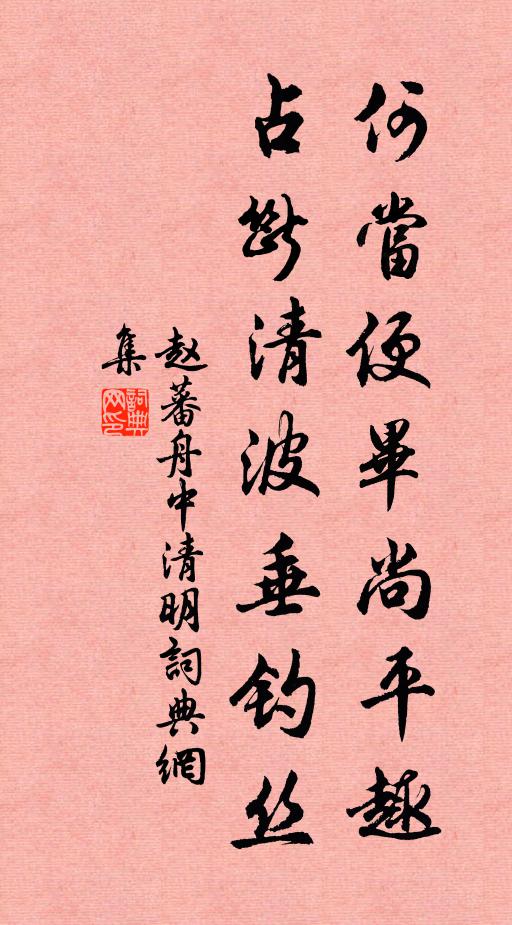 何當便畢尚平趣
占斷清波垂釣丝
赵蕃舟中清明詞典網
集
詞典
网印